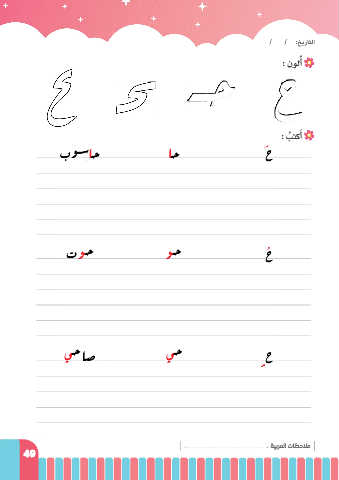 التاريخ: / /
أُلون :
أكتبُ :
حَ حا حاسوب
حُ حو حوت
حِ حي صاحي
ملاحظات المربية
49